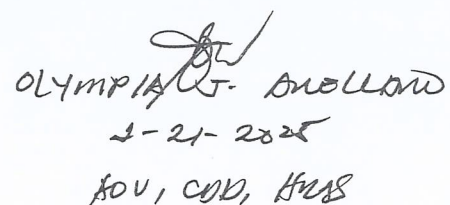 OLYMPIA J. ARELLANO
2-21-2025
AOV, CDD, HRAS